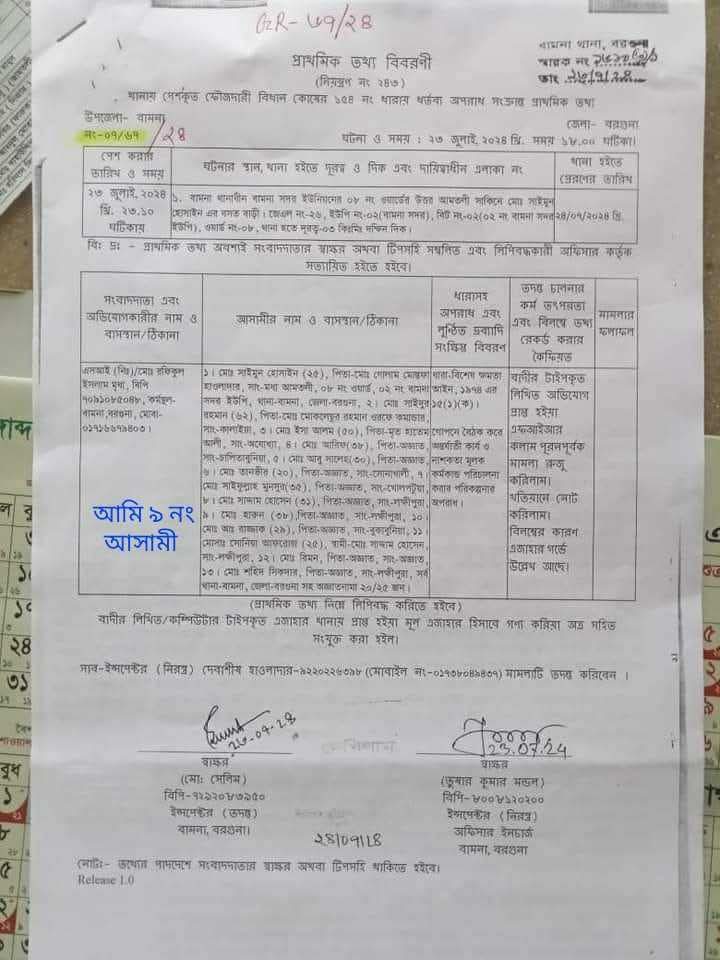 GR- ৬৭/২৪
প্রাথমিক তথ্য বিবরণী
(নিয়ন্ত্রণ নং ২৪৩)
বামনা থানা, বরগুনা
স্মারক নং
তাং ২৩/৭/২৪
থানায় পেশকৃত ফৌজদারী বিধান কোষের ১৫৪ নং ধারায় ধর্তব্য অপরাধ সংক্রান্ত প্রাথমিক তথ্য
উপজেলা- বামনা
জেলা- বরগুনা
নং-০৭/৬৭/২৪
ঘটনা ও সময় : ২৩ জুলাই, ২০২৪ খ্রি. সময় ১৮.০০ ঘটিকা।
পেশ করার তারিখ ও সময়
ঘটনার স্থান, থানা হইতে দূরত্ব ও দিক এবং দায়িত্বাধীন এলাকা নং
থানা হইতে প্রেরণের তারিখ
২৩ জুলাই, ২০২৪
খ্রি. ২৩.১০
ঘটিকায়
১. বামনা থানাধীন বামনা সদর ইউনিয়নের ০৮ নং ওয়ার্ডের উত্তর আমতলী সাকিনে মোঃ সাইমুন
হোসাইন এর বসত বাড়ী। জেএল নং-২৬, ইউপি নং-০২(বামনা সদর), বিট নং-০২(০২ নং বামনা সদর
ইউপি), ওয়ার্ড নং-০৮, থানা হতে দূরত্ব-০৩ কিঃমিঃ দক্ষিন দিক।
২৪/০৭/২০২৪ খ্রি.
বিঃ দ্রঃ - প্রাথমিক তথ্য অবশ্যই সংবাদদাতার স্বাক্ষর অথবা টিপসহি সম্বলিত এবং লিপিবদ্ধকারী অফিসার কর্তৃক
সত্যায়িত হইতে হইবে।
সংবাদদাতা এবং
অভিযোগকারীর নাম ও
বাসস্থান/ঠিকানা
আসামীর নাম ও বাসস্থান/ঠিকানা
ধারাসহ
অপরাধ এবং
লুণ্ঠিত দ্রব্যাদি
সংক্ষিপ্ত বিবরণ
তদন্ত চালনার
কর্ম তৎপরতা
এবং বিলম্বে তথ্য
রেকর্ড করার
কৈফিয়ত
মামলার
ফলাফল
এসআই (নিঃ)/মোঃ রফিকুল
ইসলাম মৃধা, বিপি
৭০৯১০৮৫০৪৮, কর্মস্থল-
বামনা,বরগুনা, মোবা-
০১৭১৬৬৭৯৪০৩।
১। মোঃ সাইমুন হোসাইন (২৫), পিতা-মোঃ গোলাম মোস্তফা
হাওলাদার, সাং-মধ্য আমতলী, ০৮ নং ওয়ার্ড, ০২ নং বামনা
সদর ইউপি, থানা-বামনা, জেলা-বরগুনা, ২। মোঃ সাইদুর
রহমান (৬২), পিতা-মোঃ মোকলেছুর রহমান ওরফে কমান্ডার,
সাং-কালাইয়া, ৩। মোঃ ইসা আলম (৫০), পিতা-মৃত হাতেম
আলী, সাং-অযোধ্যা, ৪। মোঃ আরিফ(৩৮), পিতা-অজ্ঞাত,
সাং-চালিতাবুনিয়া, ৫। মোঃ আবু সালেহ(৩০), পিতা-অজ্ঞাত,
৬। মোঃ তানভীর (২০), পিতা-অজ্ঞাত, সাং-সোনাখালী, ৭।
মোঃ সাইফুল্লাহ মুনসুর(৩৫), পিতা-অজ্ঞাত, সাং-খোলপটুয়া,
৮। মোঃ সাদ্দাম হোসেন (৩১), পিতা-অজ্ঞাত, সাং-লক্ষীপুরা,
৯। মোঃ হারুন (৩৮),পিতা-অজ্ঞাত, সাং-লক্ষীপুরা, ১০।
মোঃ আঃ রাজ্জাক (২৯), পিতা-অজ্ঞাত, সাং-বুকাবুনিয়া, ১১।
মোসাঃ সোনিয়া আফরোজা (২৫), স্বামী-মোঃ সাদ্দাম হোসেন,
সাং-লক্ষীপুরা, ১২। মোঃ রিমন, পিতা-অজ্ঞাত, সাং-অজ্ঞাত,
১৩। মোঃ শহিদ সিকদার, পিতা-অজ্ঞাত, সাং-লক্ষীপুরা, সর্ব
থানা-বামনা, জেলা-বরগুনা সহ অজ্ঞাতনামা ২০/২৫ জন।
ধারা-বিশেষ ক্ষমতা
আইন, ১৯৭৪ এর
১৫(১)(ক)।
গোপনে বৈঠক করে
অন্তর্ঘাতী কার্য ও
নাশকতা মূলক
কর্মকান্ড পরিচালনা
করার পরিকল্পনার
অপরাধ।
বাদীর টাইপকৃত
লিখিত অভিযোগ
প্রাপ্ত হইয়া
এফআইআর
কলাম পূরনপূর্বক
মামলা রুজু
করিলাম।
খতিয়ানে নোট
করিলাম।
বিলম্বের কারন
এজাহার গর্ভে
উল্লেখ আছে।
আমি ৯ নং
আসামী
(প্রাথমিক তথ্য নিম্নে লিপিবদ্ধ করিতে হইবে)
বাদীর লিখিত/কম্পিউটার টাইপকৃত এজাহার থানায় প্রাপ্ত হইয়া মূল এজাহার হিসাবে গণ্য করিয়া অত্র সহিত
সংযুক্ত করা হইল।
সাব-ইন্সপেক্টর (নিরস্ত্র) দেবাশীষ হাওলাদার-৯২২০২২৬৩৯৮ (মোবাইল নং-০১৭৩৮০৪৯৪৩৭) মামলাটি তদন্ত করিবেন ।
২৩-০৭-২৪
স্বাক্ষর
(মো: সেলিম)
বিপি-৭২৯২০৮৩৯৫০
ইন্সপেক্টর (তদন্ত)
বামনা, বরগুনা।
23.07.24
স্বাক্ষর
(তুষার কুমার মন্ডল)
বিপি-৮০০৮১২০২০০
ইন্সপেক্টর (নিরস্ত্র)
অফিসার ইনচার্জ
বামনা, বরগুনা
২৪/০৭/২৪
নোট:- তথ্যের পাদদেশে সংবাদদাতার স্বাক্ষর অথবা টিপসহি থাকিতে হইবে।
Release 1.0